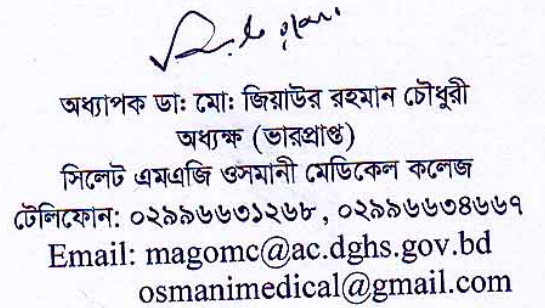 অধ্যাপক ডাঃ মোঃ জিয়াউর রহমান চৌধুরী
অধ্যক্ষ (ভারপ্রাপ্ত)
সিলেট এমএজি ওসমানী মেডিকেল কলেজ
টেলিফোন: ০২৯৯৬৬৩১২৬৮, ০২৯৯৬৬৩৪৬৬৭
Email: magomc@ac.dghs.gov.bd
osmanimedical@gmail.com